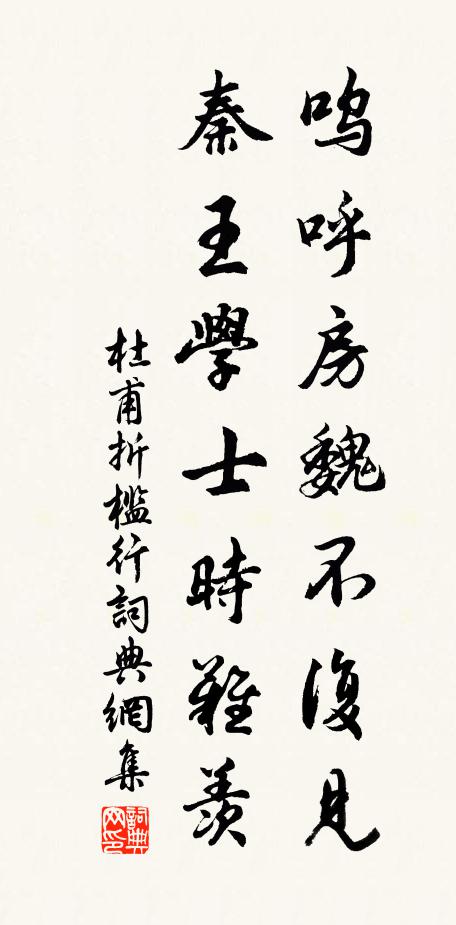 嗚呼房魏不復見
秦王學士時難羨
杜甫折檻行詞典網集
詞典网印